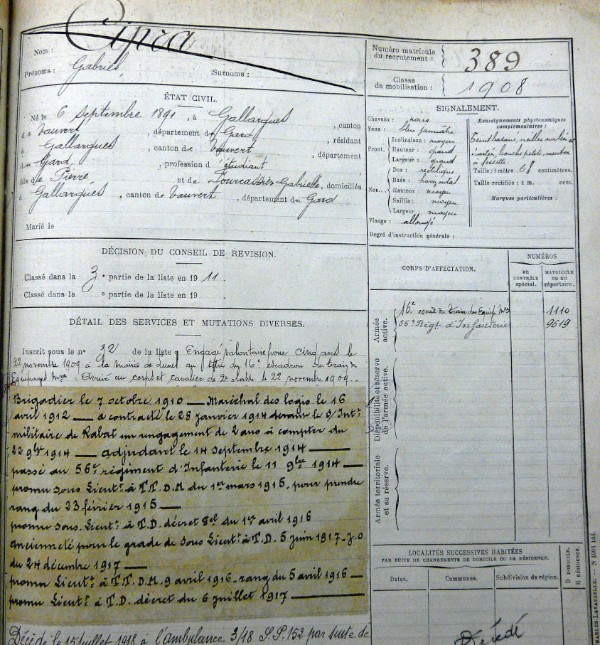 Nom : Cipra
Prénoms : Gabriel, Surnoms :
ÉTAT CIVIL.
Né le 6 septembre 1891, à Gallargues, canton
de Vauvert, département du Gard, résidant
à Gallargues, canton de Vauvert, département
du Gard, profession d'étudiant
fils de Pierre et de Gabrielle, domiciliés
à Gallargues, canton de Vauvert, département du Gard
Marié le
DÉCISION DU CONSEIL DE REVISION.
Classé dans la 3e partie de la liste en 1911.
Classé dans la partie de la liste en 19
DÉTAIL DES SERVICES ET MUTATIONS DIVERSES.
Inscrit sous le no 32 de la liste Engagé volontaire pour cinq ans le
22 novembre 1909 à la mairie de Lunel au titre du 16e escadron du train des
Équipages Mres Arrivé au corps et cavalier de 2e classe le 22 novembre 1909.
Brigadier le 7 octobre 1910 — Maréchal des logis le 16
avril 1912 — a contracté le 28 janvier 1914 devant le S/Int
militaire de Rabat un engagement de 2 ans à compter du
22 9bre 1914 — adjudant le 14 septembre 1914 —
passé au 56e régiment d'Infanterie le 11 9bre 1914 —
promu sous Lieutt à T.T. D.M du 1er mars 1915, pour prendre
rang du 23 février 1915 —
promu Sous. Lieutt à T.D. décret du 1er avril 1916
ancienneté pour le grade de Sous Lieutt à T.D. 5 juin 1917 - J.O
du 24 décembre 1917 —
promu Lieutt à T.T. D.M. 9 avril 1916 - rang du 5 avril 1916 —
promu Lieutt à T.D. décret du 6 juillet 1917 —
Décédé le 15 juillet 1918 à l'ambulance 3/18 S.P. 152 par suite de
Numéro matricule
du recrutement : 389
Classe
de mobilisation : 1908
SIGNALEMENT.
Cheveux :
Yeux :
Front. Inclinaison : moyen
Hauteur : grand
Largeur : grand
Nez. Dos : rectiligne
Base :
Hauteur : moyen
Saillie : moyen
Largeur : moyen
Visage : allongé
Renseignements physionomiques
complémentaires :
Taille : 1 mètre centimètres.
Taille rectifiée : 1 m. cent.
Marques particulières :
Degré d'instruction générale :
CORPS D'AFFECTATION.
NUMÉROS
AU CONTRÔLE spécial.
MATRICULE OU AU répertoire.
Armée active.
16e escad du Train des Équip. Mres 1110
56e Régt d'Infanterie 9619
Disponibilité et réserve de l'armée active.
Armée territoriale et sa réserve.
LOCALITÉS SUCCESSIVES HABITÉES
PAR SUITE DE CHANGEMENTS DE DOMICILE OU DE RÉSIDENCE.
Dates. Communes. Subdivision de région. D. DOMICILE. R. RÉSIDENCE.
Décédé